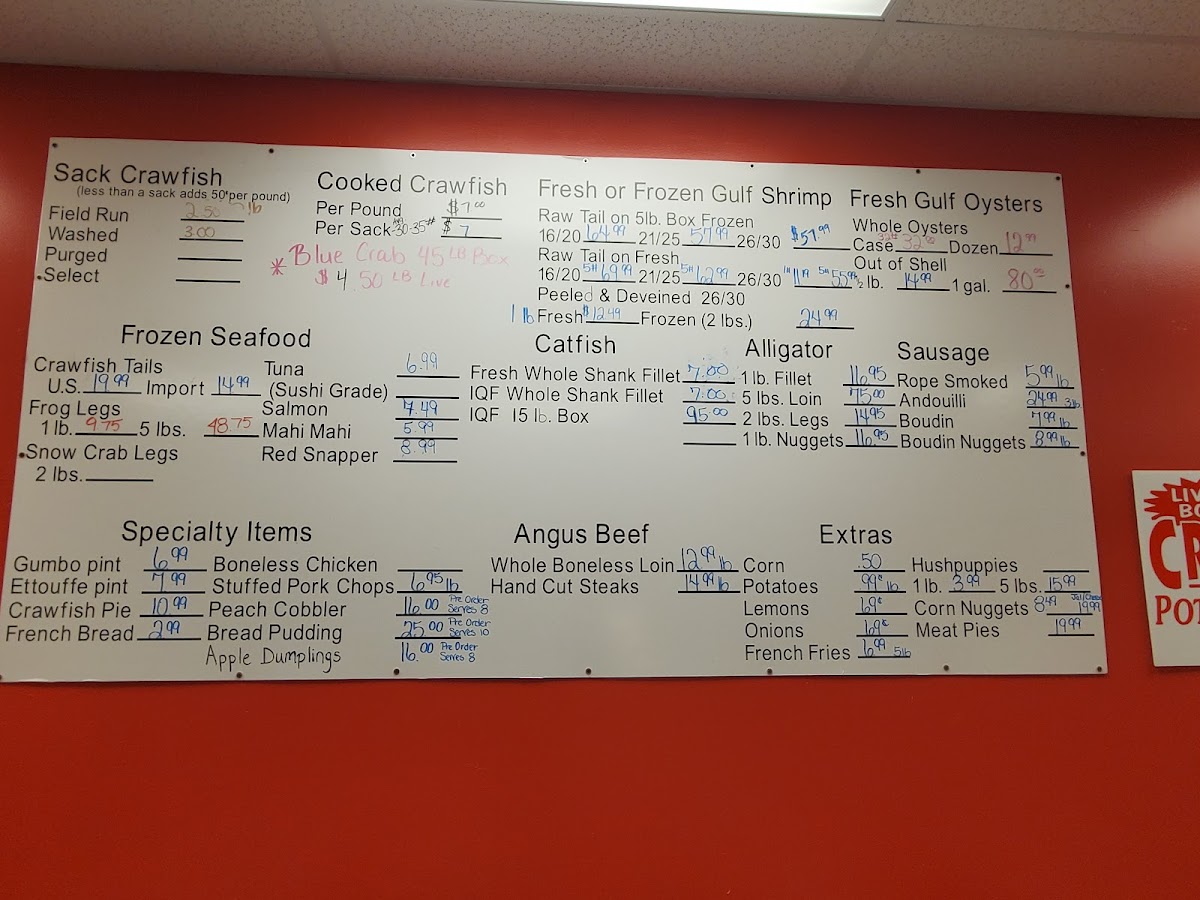 Sack Crawfish
(less than a sack adds 50¢ per pound)
Field Run 2.50 lb
Washed 3.00
Purged
Select
Cooked Crawfish
Per Pound $7.00
Per Sack 30-35# $7
* Blue Crab 45 LB Box
$4.50 LB Live
Fresh or Frozen Gulf Shrimp
Raw Tail on 5lb. Box Frozen
16/20 64.99 21/25 57.99 26/30 $51.99
Raw Tail on Fresh
16/20 5# 69.99 21/25 5# 62.99 26/30 1# 11.19 5# 55.99
Peeled & Deveined 26/30
1 lb Fresh $12.49 Frozen (2 lbs.) 24.99
Fresh Gulf Oysters
Whole Oysters
Case 32.00 Dozen 12.99
Out of Shell
½ lb. 14.99 1 gal. 80.00
Frozen Seafood
Crawfish Tails
U.S. 19.99 Import 14.99
Frog Legs
1 lb. 9.75 5 lbs. 48.75
Snow Crab Legs
2 lbs.
Tuna 6.99
(Sushi Grade)
Salmon 7.49
Mahi Mahi 5.99
Red Snapper 8.99
Catfish
Fresh Whole Shank Fillet 7.00
IQF Whole Shank Fillet 7.00
IQF 15 lb. Box 95.00
Alligator
1 lb. Fillet 16.95
5 lbs. Loin 75.00
2 lbs. Legs 14.95
1 lb. Nuggets 16.95
Sausage
Rope Smoked 5.99 lb
Andouilli 24.99 3lb
Boudin 7.99 lb
Boudin Nuggets 8.99 lb
Specialty Items
Gumbo pint 6.99
Ettouffe pint 7.99
Crawfish Pie 10.99
French Bread 2.99
Boneless Chicken
Stuffed Pork Chops 6.95 lb
Peach Cobbler 16.00 Pre Order Serves 8
Bread Pudding 25.00 Pre Order Serves 10
Apple Dumplings 16.00 Pre Order Serves 8
Angus Beef
Whole Boneless Loin 12.99 lb
Hand Cut Steaks 14.99 lb
Extras
Corn .50
Potatoes 99¢ lb
Lemons 69¢
Onions 69¢
French Fries 6.99 5lb
Hushpuppies
1 lb. 3.99 5 lbs. 15.99
Corn Nuggets 8.49 19.99
Meat Pies 19.99